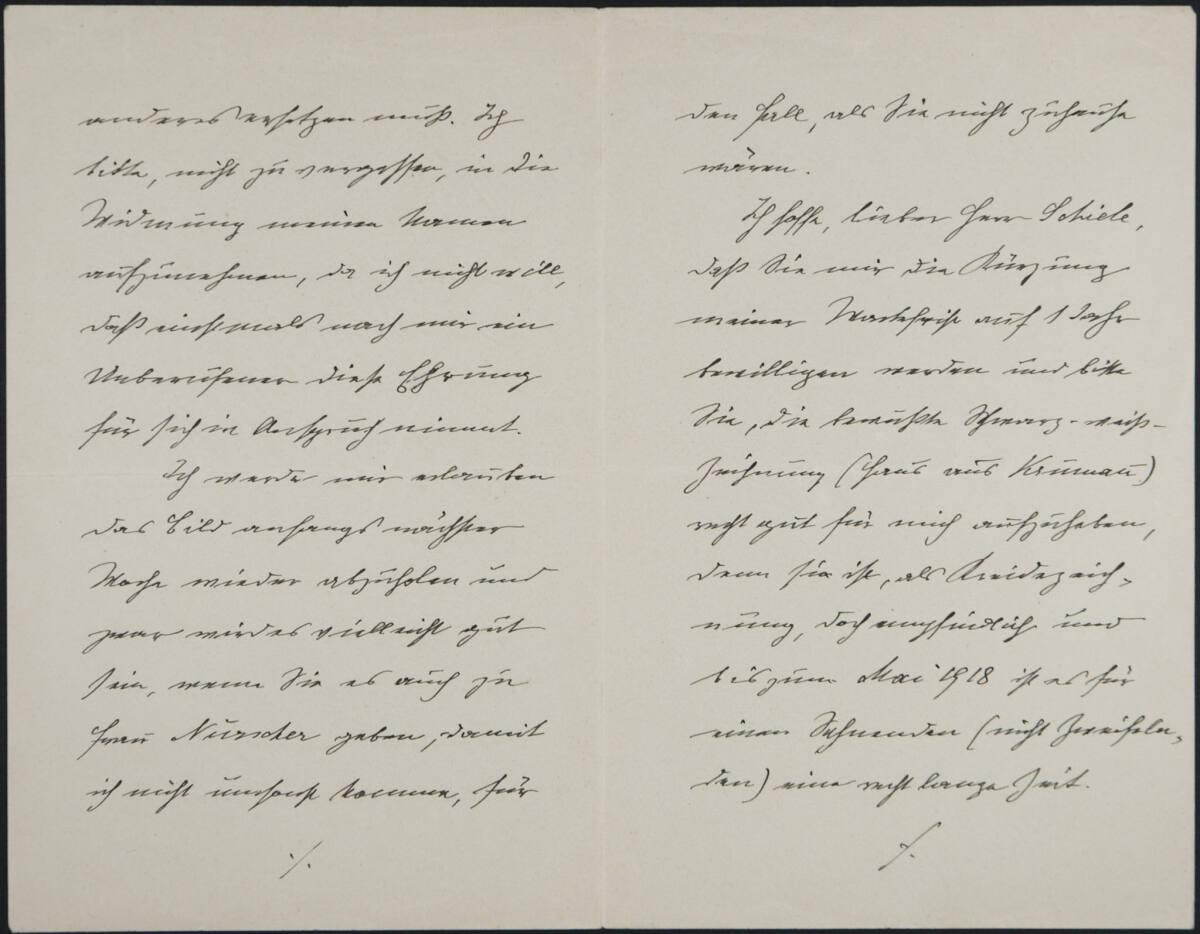 anderes ersetzen muß. Ich
bitte, nicht zu vergessen, in die
Widmung meinen Namen
aufzunehmen, da ich nicht will,
daß einstmals nach mir ein
Unberufener diese Ehrung
für sich in Anspruch nimmt.
Ich werde mir erlauben
das Bild anfangs nächster
Woche wieder abzuholen und
zwar wird es vielleicht gut
sein, wenn Sie es auch zu
Frau Nürscher geben, damit
ich nicht umsonst komme, für
./.
den Fall, als Sie nicht zuhause
wären.
Ich hoffe, lieber Herr Schiele,
daß Sie mir die Kürzung
meiner Wartefrist auf 1 Jahr
bewilligen werden und bitte
Sie, die bewußte Schwarz-weiß-
zeichnung (Haus aus Krumau)
recht gut für mich aufzuheben,
denn sie ist, als Kreidezeich-
nung, doch empfindlich und
bis zum Mai 1918 ist es für
einen Sehnenden (nicht Zweifeln-
den) eine recht lange Zeit.
./.